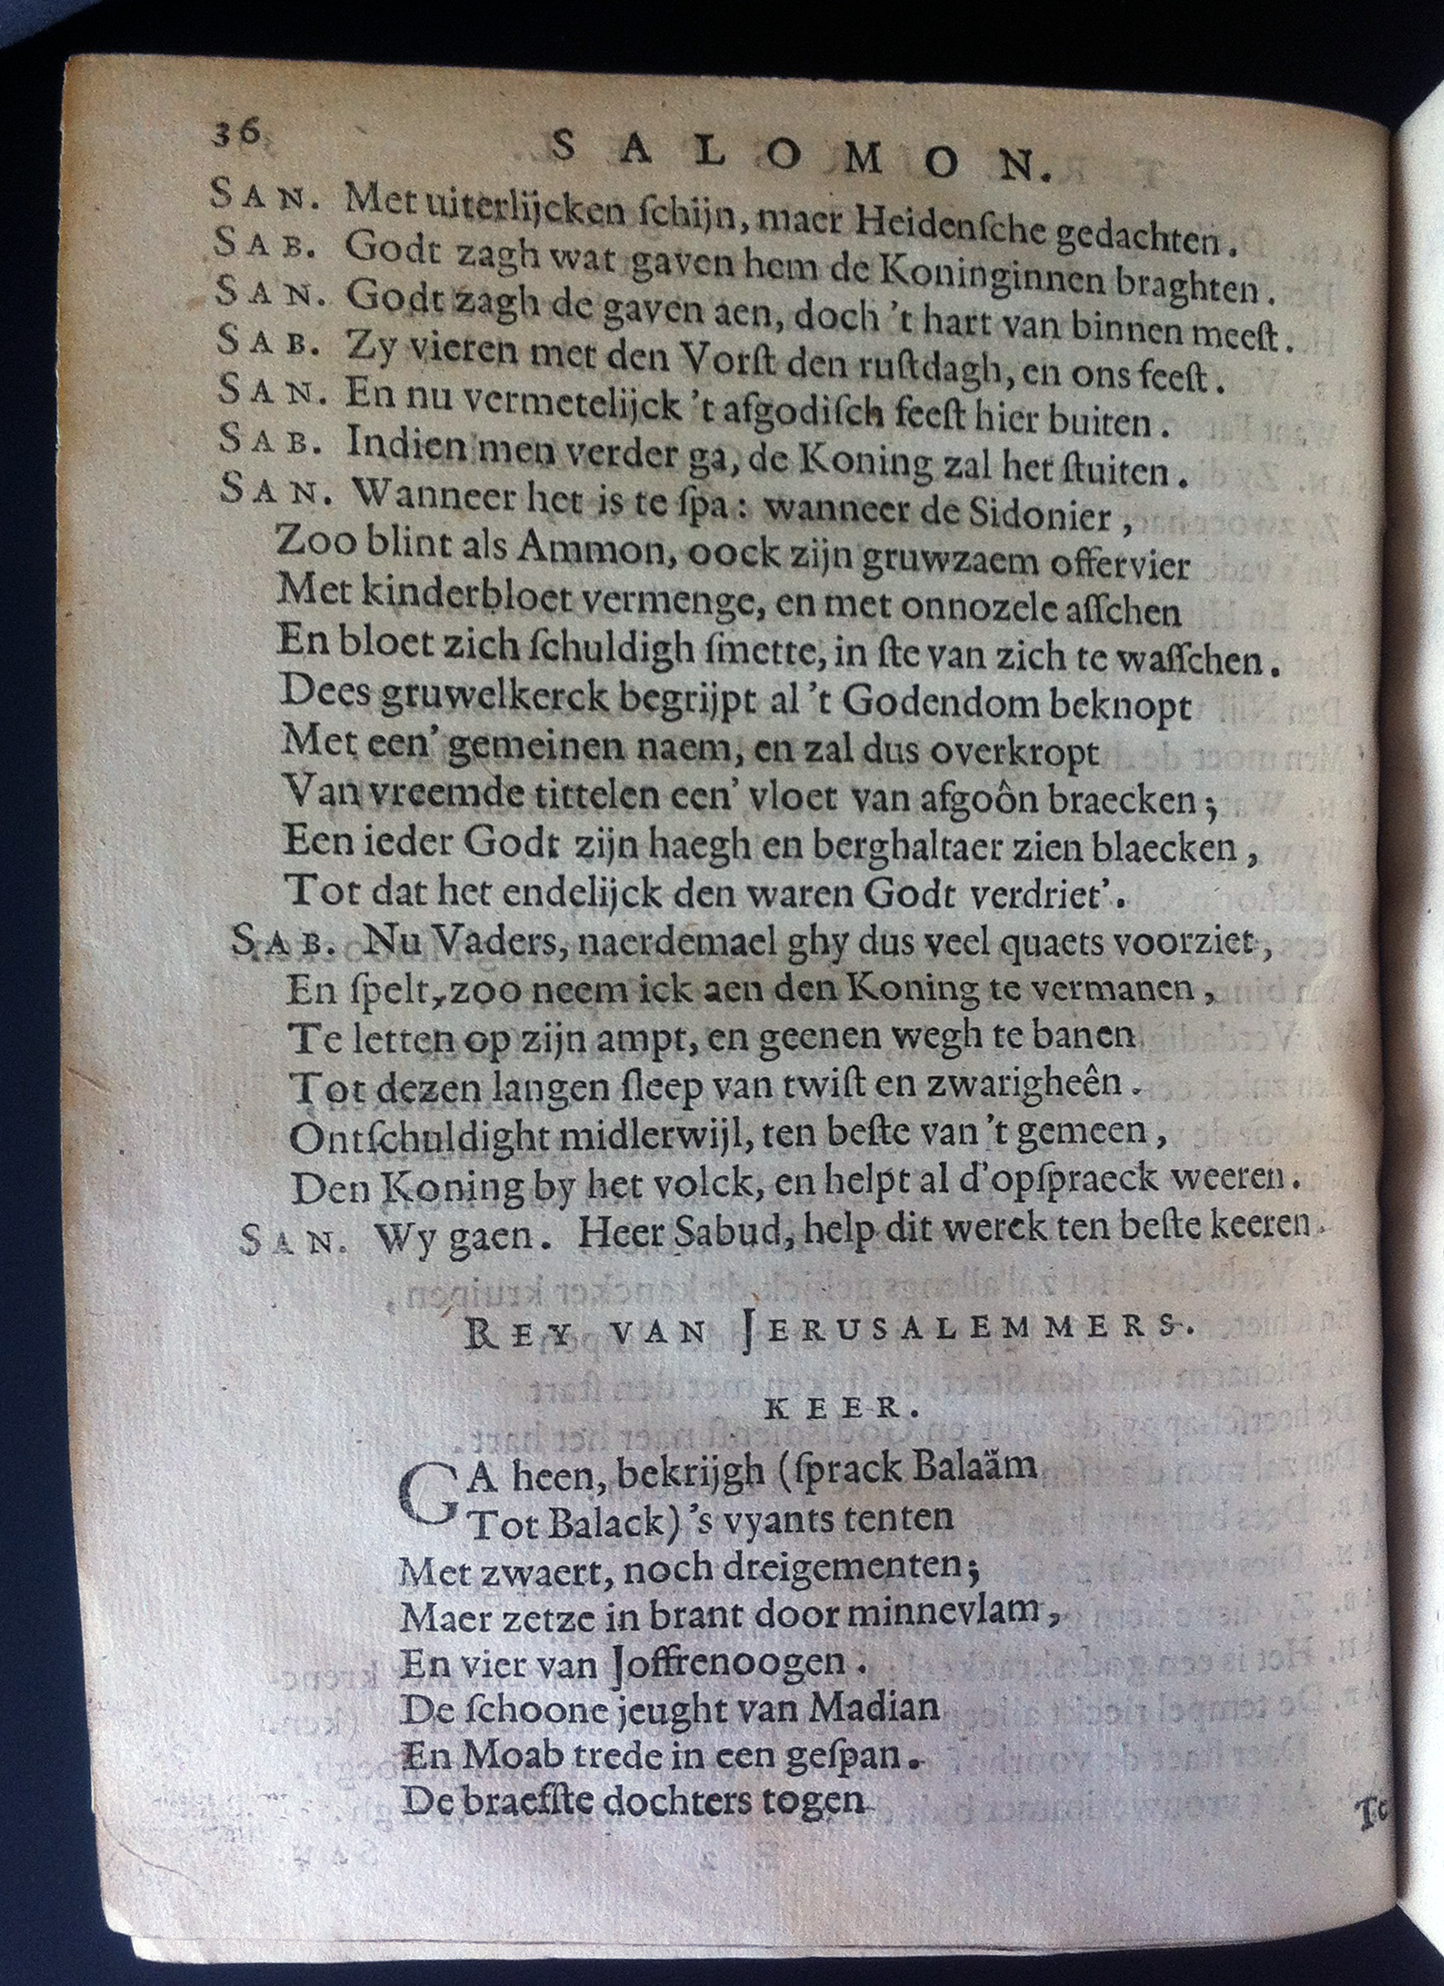 36
SALOMON.
SAN. Met uiterlijcken ſchijn, maer Heidenſche gedachten.
SAB. Godt zagh wat gaven hem de Koninginnen braghten.
SAN. Godt zagh de gaven aen, doch 't hart van binnen meeſt.
SAB. Zy vieren met den Vorſt den ruſtdagh, en ons feeſt.
SAN. En nu vermetelijck 't afgodiſch feeſt hier buiten.
SAB. Indien men verder ga, de Koning zal het ſtuiten.
SAN. Wanneer het is te ſpa: wanneer de Sidonier,
Zoo blint als Ammon, oock zijn gruwzaem offervier
Met kinderbloet vermenge, en met onnozele aſſchen
En bloet zich ſchuldigh ſmette, in ſte van zich te waſſchen.
Dees gruwelkerck begrijpt al 't Godendom beknopt
Met een' gemeinen naem, en zal dus overkropt
Van vreemde tittelen een' vloet van afgoôn braecken;
Een ieder Godt zijn haegh en berghaltaer zien blaecken,
Tot dat het endelijck den waren Godt verdriet'.
SAB. Nu Vaders, naerdemael ghy dus veel quaets voorziet,
En ſpelt, zoo neem ick aen den Koning te vermanen,
Te letten op zijn ampt, en geenen wegh te banen
Tot dezen langen ſleep van twiſt en zwarigheên.
Ontſchuldight midlerwijl, ten beſte van 't gemeen,
Den Koning by het volck, en helpt al d'opſpraeck weeren.
SAN. Wy gaen. Heer Sabud, help dit werck ten beſte keeren.
REY VAN JERUSALEMMERS.
KEER.
GA heen, bekrijgh (ſprack Balaäm
Tot Balack) 's vyants tenten
Met zwaert, noch dreigementen;
Maer zetze in brant door minnevlam,
En vier van Joffrenoogen.
De ſchoone jeught van Madian
En Moab trede in een geſpan.
De braefſte dochters togen